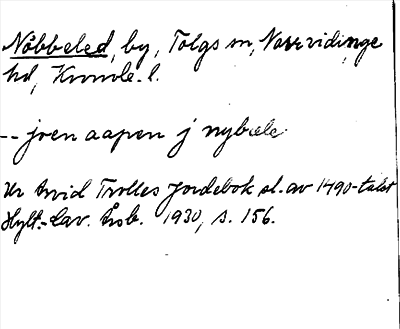 Nöbbeled, by, Tolgs sn, Norrvidinge
hd, Kronob. l.
-- joen aapen j nybele
Ur Arvid Trolles Jordebok sl. av 1490-talet
Hylt.-Cav. Årsb. 1930, s. 156.